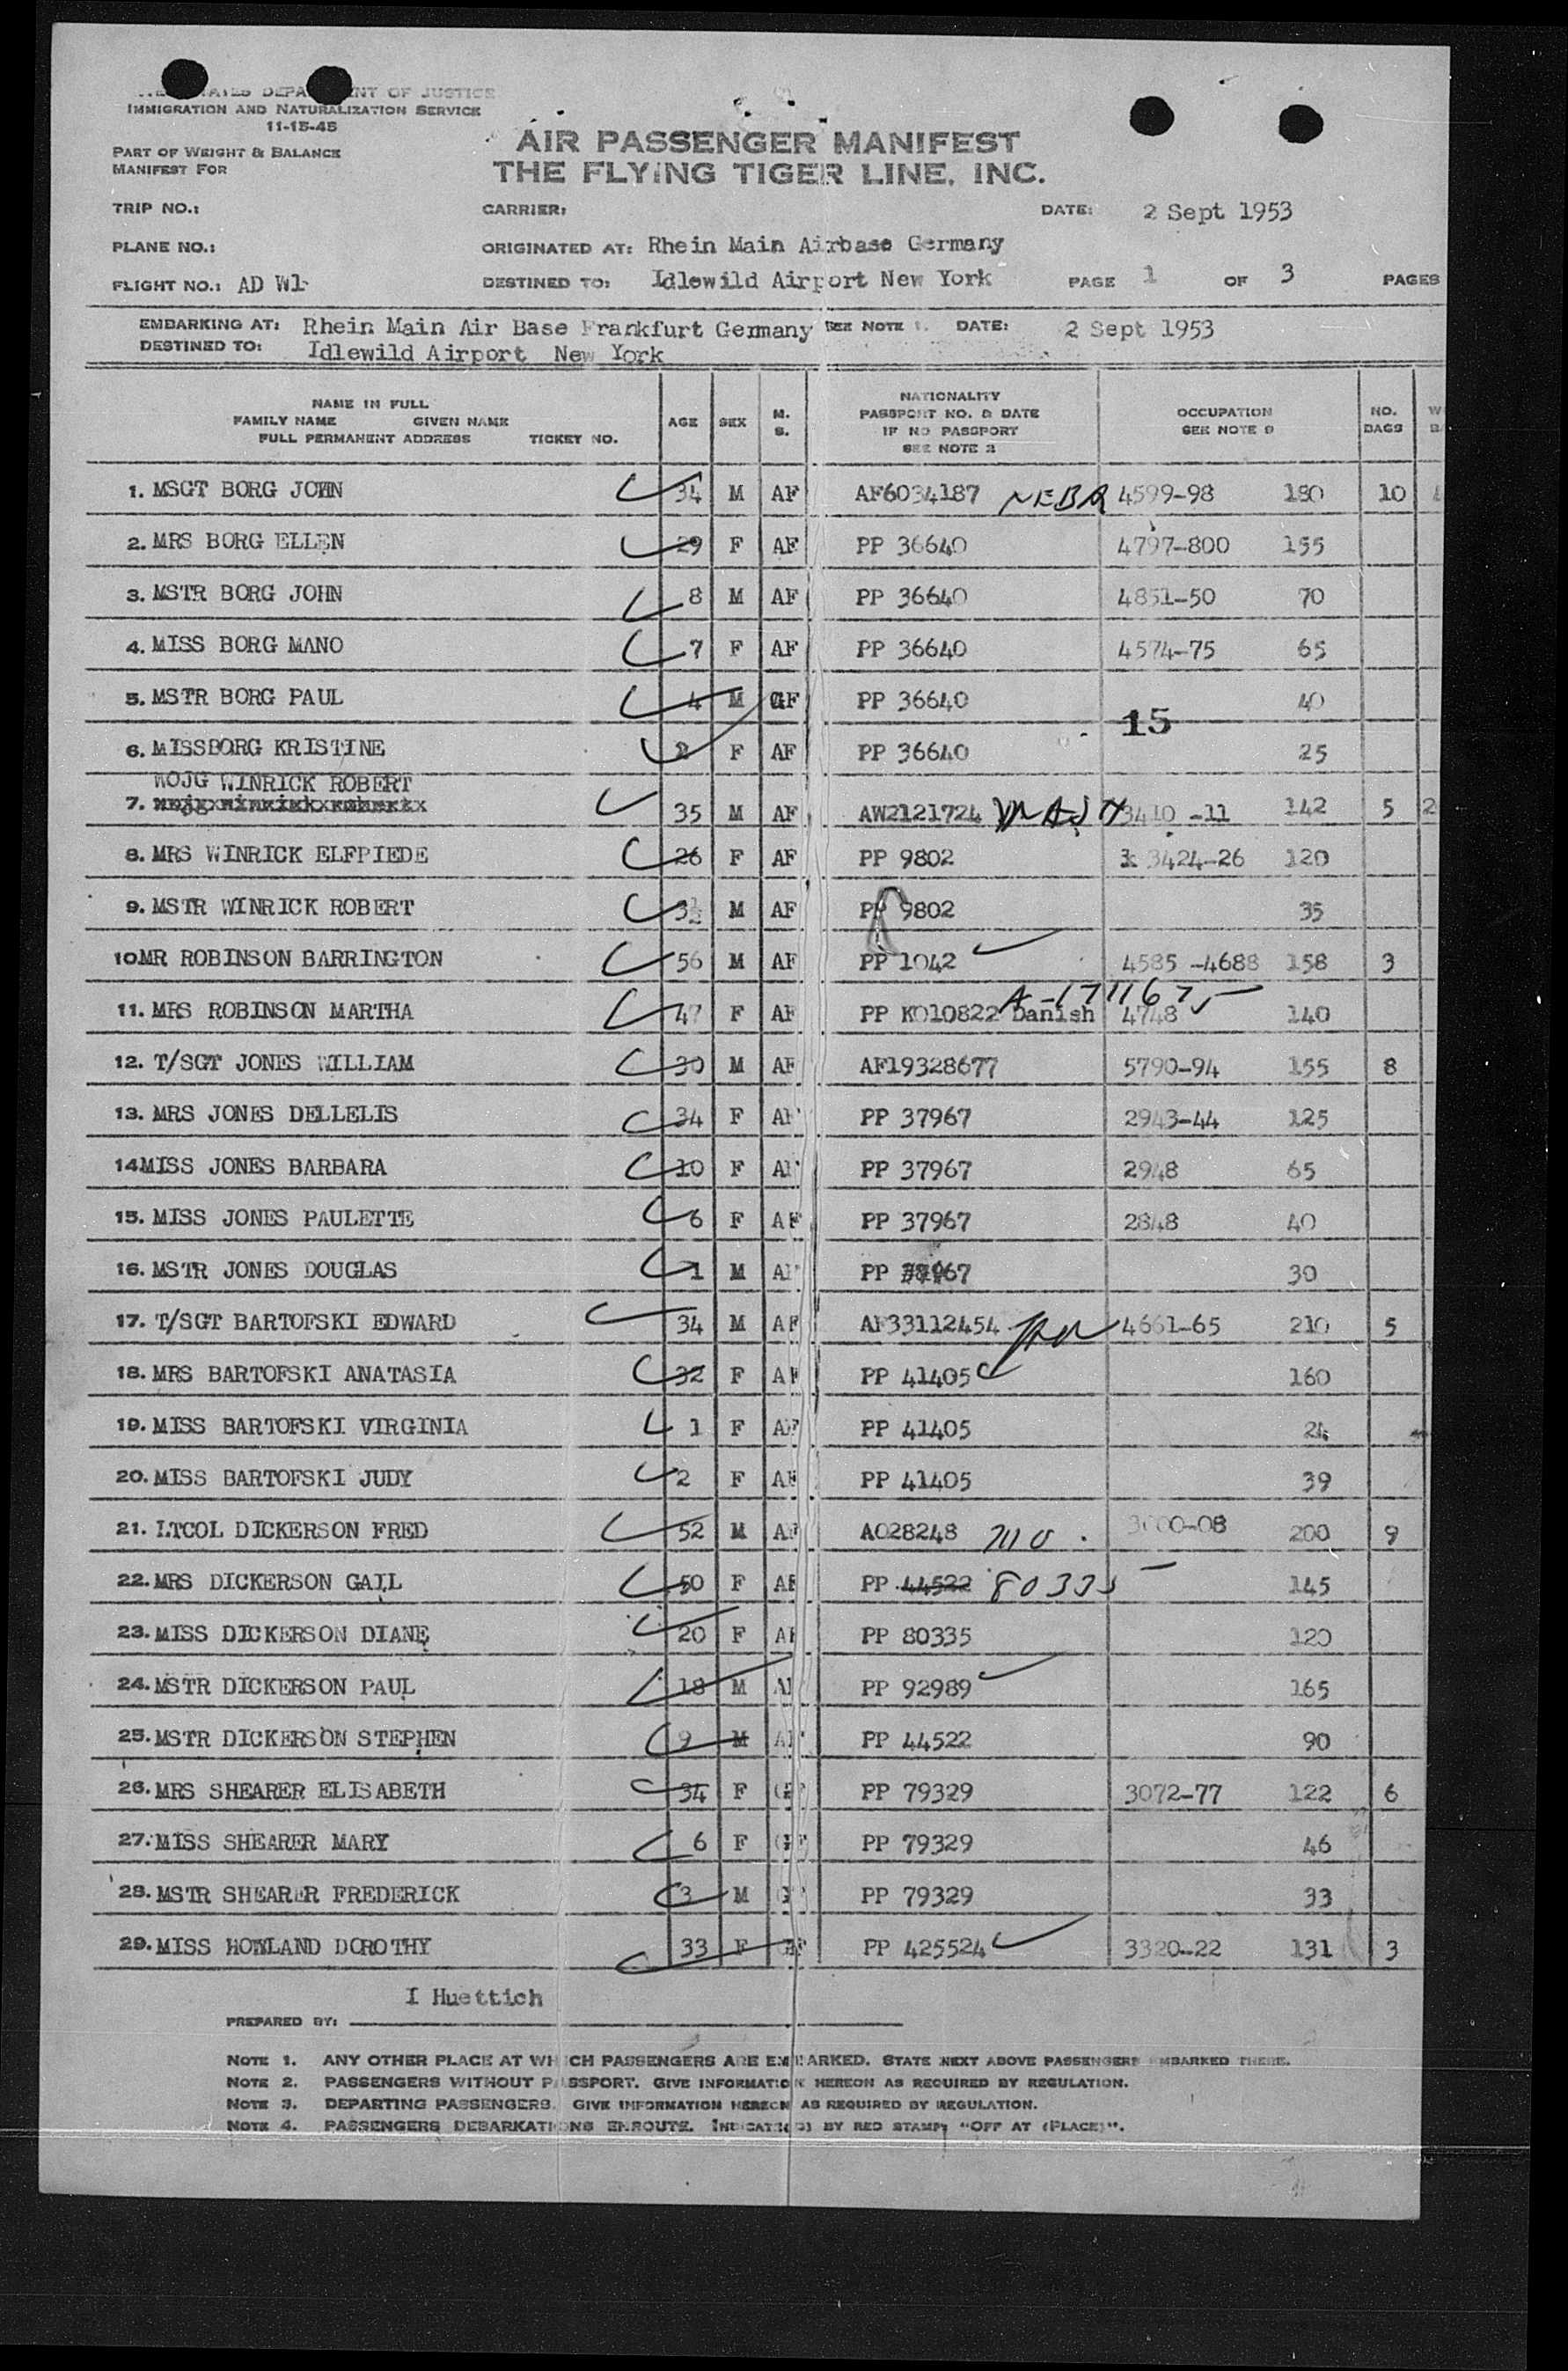 DEPA ENT OF JUSTICE
IMMIGRATION AND NATURALIZATION SERVICE
11-15-45
AIR PASSENGER MANIFEST
THE FLYING TIGER LINE, INC.
PART OF WEIGHT & BALANCE
MANIFEST FOR
TRIP NO.: CARRIER: DATE: 2 Sept 1953
PLANE NO.: ORIGINATED AT: Rhein Main Airbase Germany
FLIGHT NO.: AD W1 DESTINED TO: Idlewild Airport New York PAGE 1 OF 3 PAGES
EMBARKING AT: Rhein Main Air Base Frankfurt Germany SEE NOTE 1. DATE: 2 Sept 1953
DESTINED TO: Idlewild Airport New York
NAME IN FULL
FAMILY NAME GIVEN NAME
FULL PERMANENT ADDRESS TICKET NO.
AGE SEX M. S.
NATIONALITY
PASSPORT NO. & DATE
IF NO PASSPORT
SEE NOTE 2
OCCUPATION
SEE NOTE 9
NO.
BAGS
1. MSGT BORG JOHN 34 M AF AF6034187 NEBR 4599-98 180 10
2. MRS BORG ELLEN 29 F AF PP 36640 4797-800 155
3. MSTR BORG JOHN 8 M AF PP 36640 4851-50 70
4. MISS BORG MANO 7 F AF PP 36640 4574-75 65
5. MSTR BORG PAUL 4 M GF PP 36640 40
15
6. MISSBORG KRISTINE 2 F AF PP 36640 25
WOJG WINRICK ROBERT
7. 35 M AF AW2121724 3410 -11 142 5 2
8. MRS WINRICK ELFPIEDE 26 F AF PP 9802 3424-26 120
9. MSTR WINRICK ROBERT 3½ M AF PP 9802 35
10. MR ROBINSON BARRINGTON 56 M AF PP 1042 4585 -4688 158 3
A-171167
11. MRS ROBINSON MARTHA 47 F AF PP KO10822 Danish 4748 140
12. T/SGT JONES WILLIAM 30 M AF AF19328677 5790-94 155 8
13. MRS JONES DELLELIS 34 F AF PP 37967 2943-44 125
14. MISS JONES BARBARA 10 F AF PP 37967 2948 65
15. MISS JONES PAULETTE 6 F AF PP 37967 2848 40
16. MSTR JONES DOUGLAS 1 M AF PP 37967 30
17. T/SGT BARTOFSKI EDWARD 34 M AF AF33112454 4661-65 210 5
18. MRS BARTOFSKI ANATASIA 32 F AF PP 41405 160
19. MISS BARTOFSKI VIRGINIA 1 F AF PP 41405 24
20. MISS BARTOFSKI JUDY 2 F AF PP 41405 39
21. LTCOL DICKERSON FRED 52 M AF AO28248 mo. 3000-08 200 9
22. MRS DICKERSON GAIL 50 F AF PP 44522 80335 145
23. MISS DICKERSON DIANE 20 F AF PP 80335 120
24. MSTR DICKERSON PAUL 18 M AF PP 92989 165
25. MSTR DICKERSON STEPHEN 9 M AF PP 44522 90
26. MRS SHEARER ELISABETH 34 F GF PP 79329 3072-77 122 6
27. MISS SHEARER MARY 6 F GF PP 79329 46
28. MSTR SHEARER FREDERICK 3 M GF PP 79329 33
29. MISS HOWLAND DOROTHY 33 F GF PP 425524 3320-22 131 3
I Huettich
PREPARED BY:
NOTE 1. ANY OTHER PLACE AT WHICH PASSENGERS ARE EMBARKED. STATE NEXT ABOVE PASSENGERS EMBARKED THERE.
NOTE 2. PASSENGERS WITHOUT PASSPORT. GIVE INFORMATION HEREON AS REQUIRED BY REGULATION.
NOTE 3. DEPARTING PASSENGERS. GIVE INFORMATION HEREON AS REQUIRED BY REGULATION.
NOTE 4. PASSENGERS DEBARKATIONS ENROUTE. INDICATE(D) BY RED STAMP: "OFF AT (PLACE)".